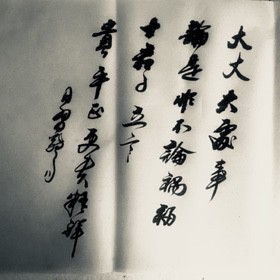 大丈夫處事
論是非不論禍福
士君子立言
貴平正更貴精詳